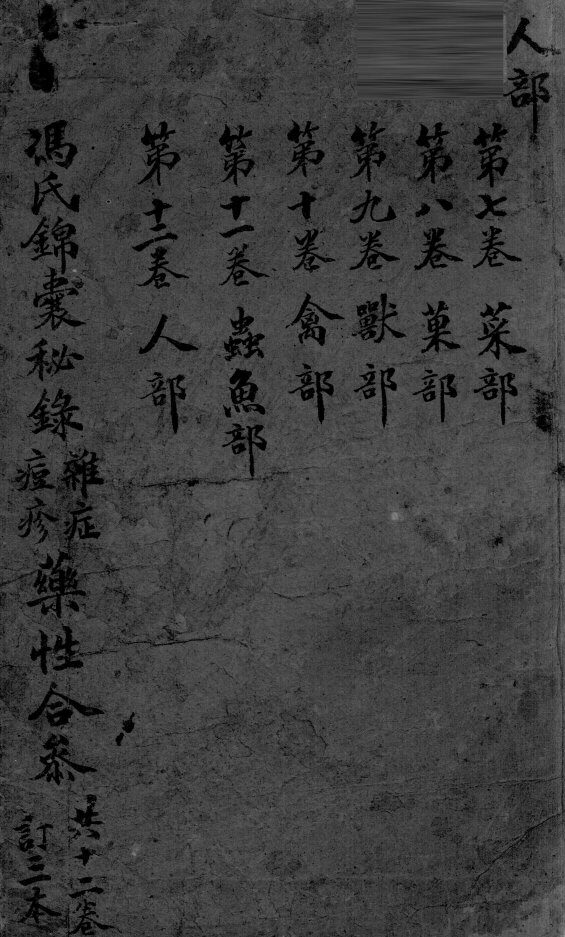 人部
第七卷 菜部
第八卷 菓部
第九卷 獸部
第十卷 禽部
第十一卷 蟲魚部
第十二卷 人部
馮氏錦囊秘錄 雜症 痘疹 藥性合參 共十二卷 訂三本